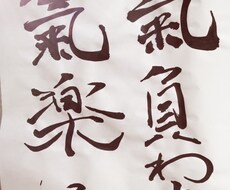 氣負わ
氣楽